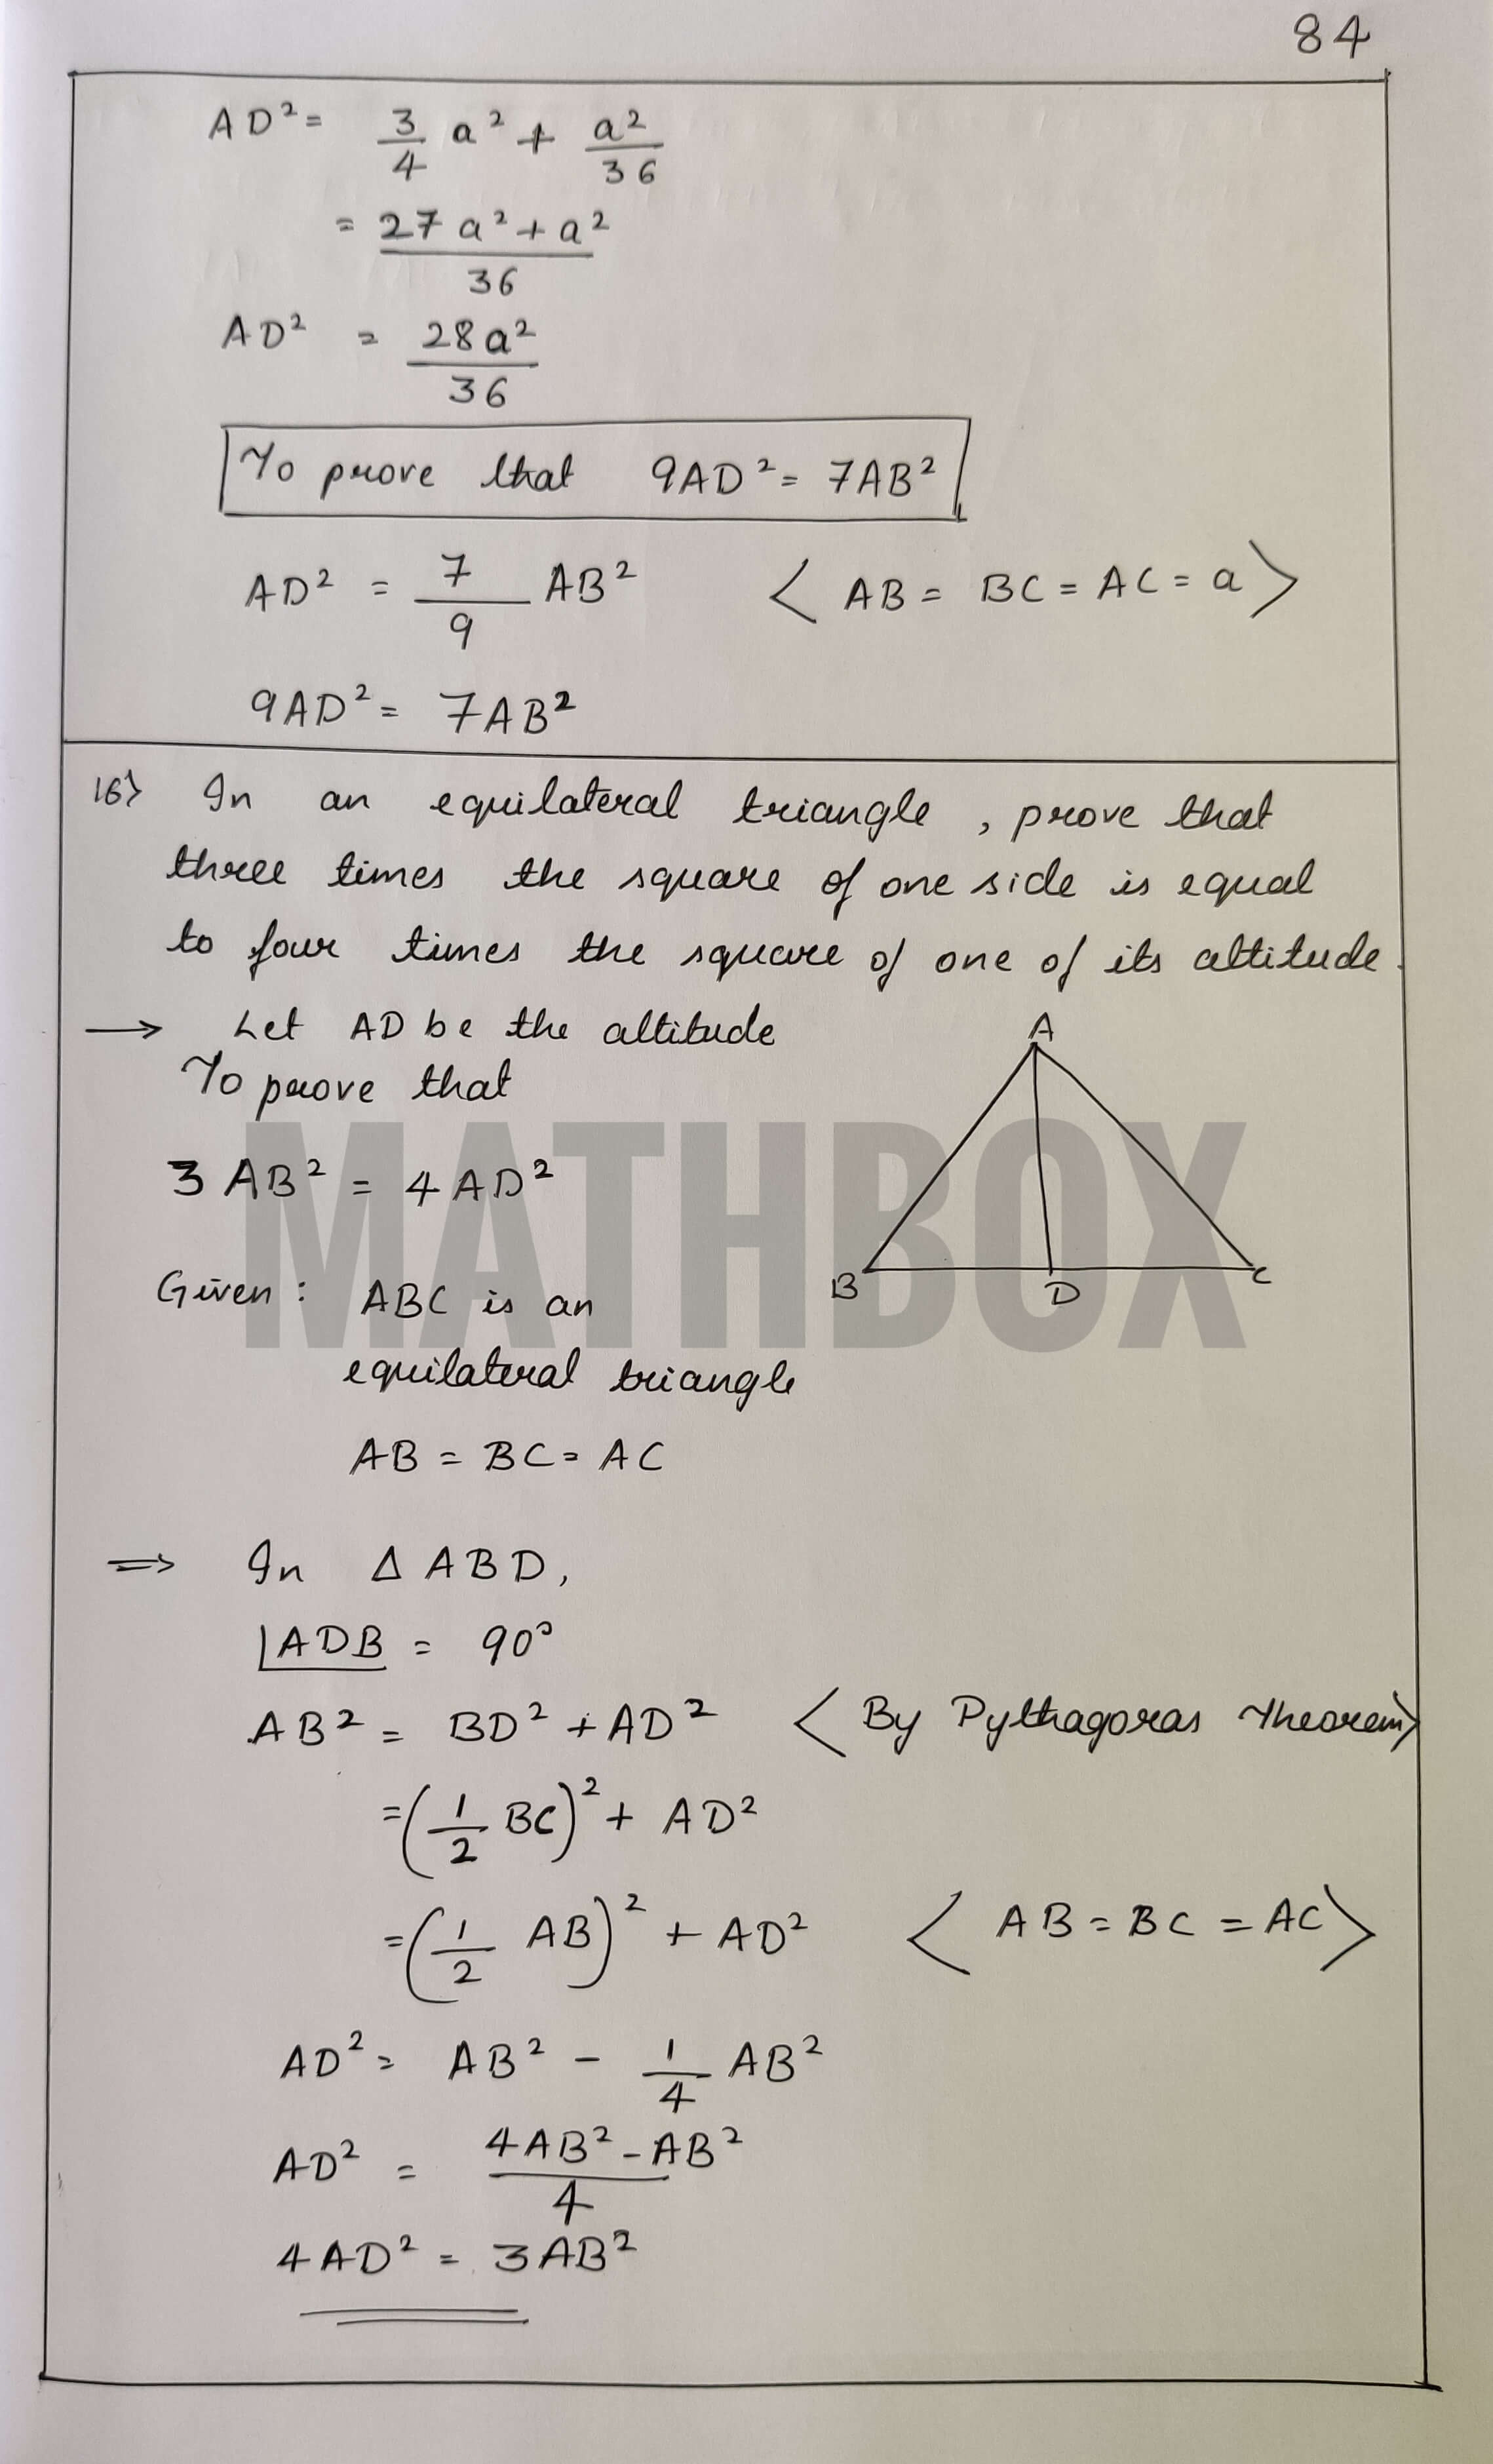 84
AD² = 3/4 a² + a²/36
= 27a² + a²/36
AD² = 28a²/36
To prove that 9AD² = 7AB²
AD² = 7/9 AB² < AB = BC = AC = a >
9AD² = 7AB²
16> In an equilateral triangle, prove that
three times the square of one side is equal
to four times the square of one of its altitude.
→ Let AD be the altitude
To prove that
3AB² = 4AD²
A
B D C
MATHBOX
Given : ABC is an
equilateral triangle
AB = BC = AC
⇒ In Δ ABD,
∠ADB = 90°
AB² = BD² + AD² < By Pythagoras Theorem >
= (1/2 BC)² + AD²
= (1/2 AB)² + AD² < AB = BC = AC >
AD² = AB² - 1/4 AB²
AD² = 4AB² - AB²/4
4AD² = 3AB²